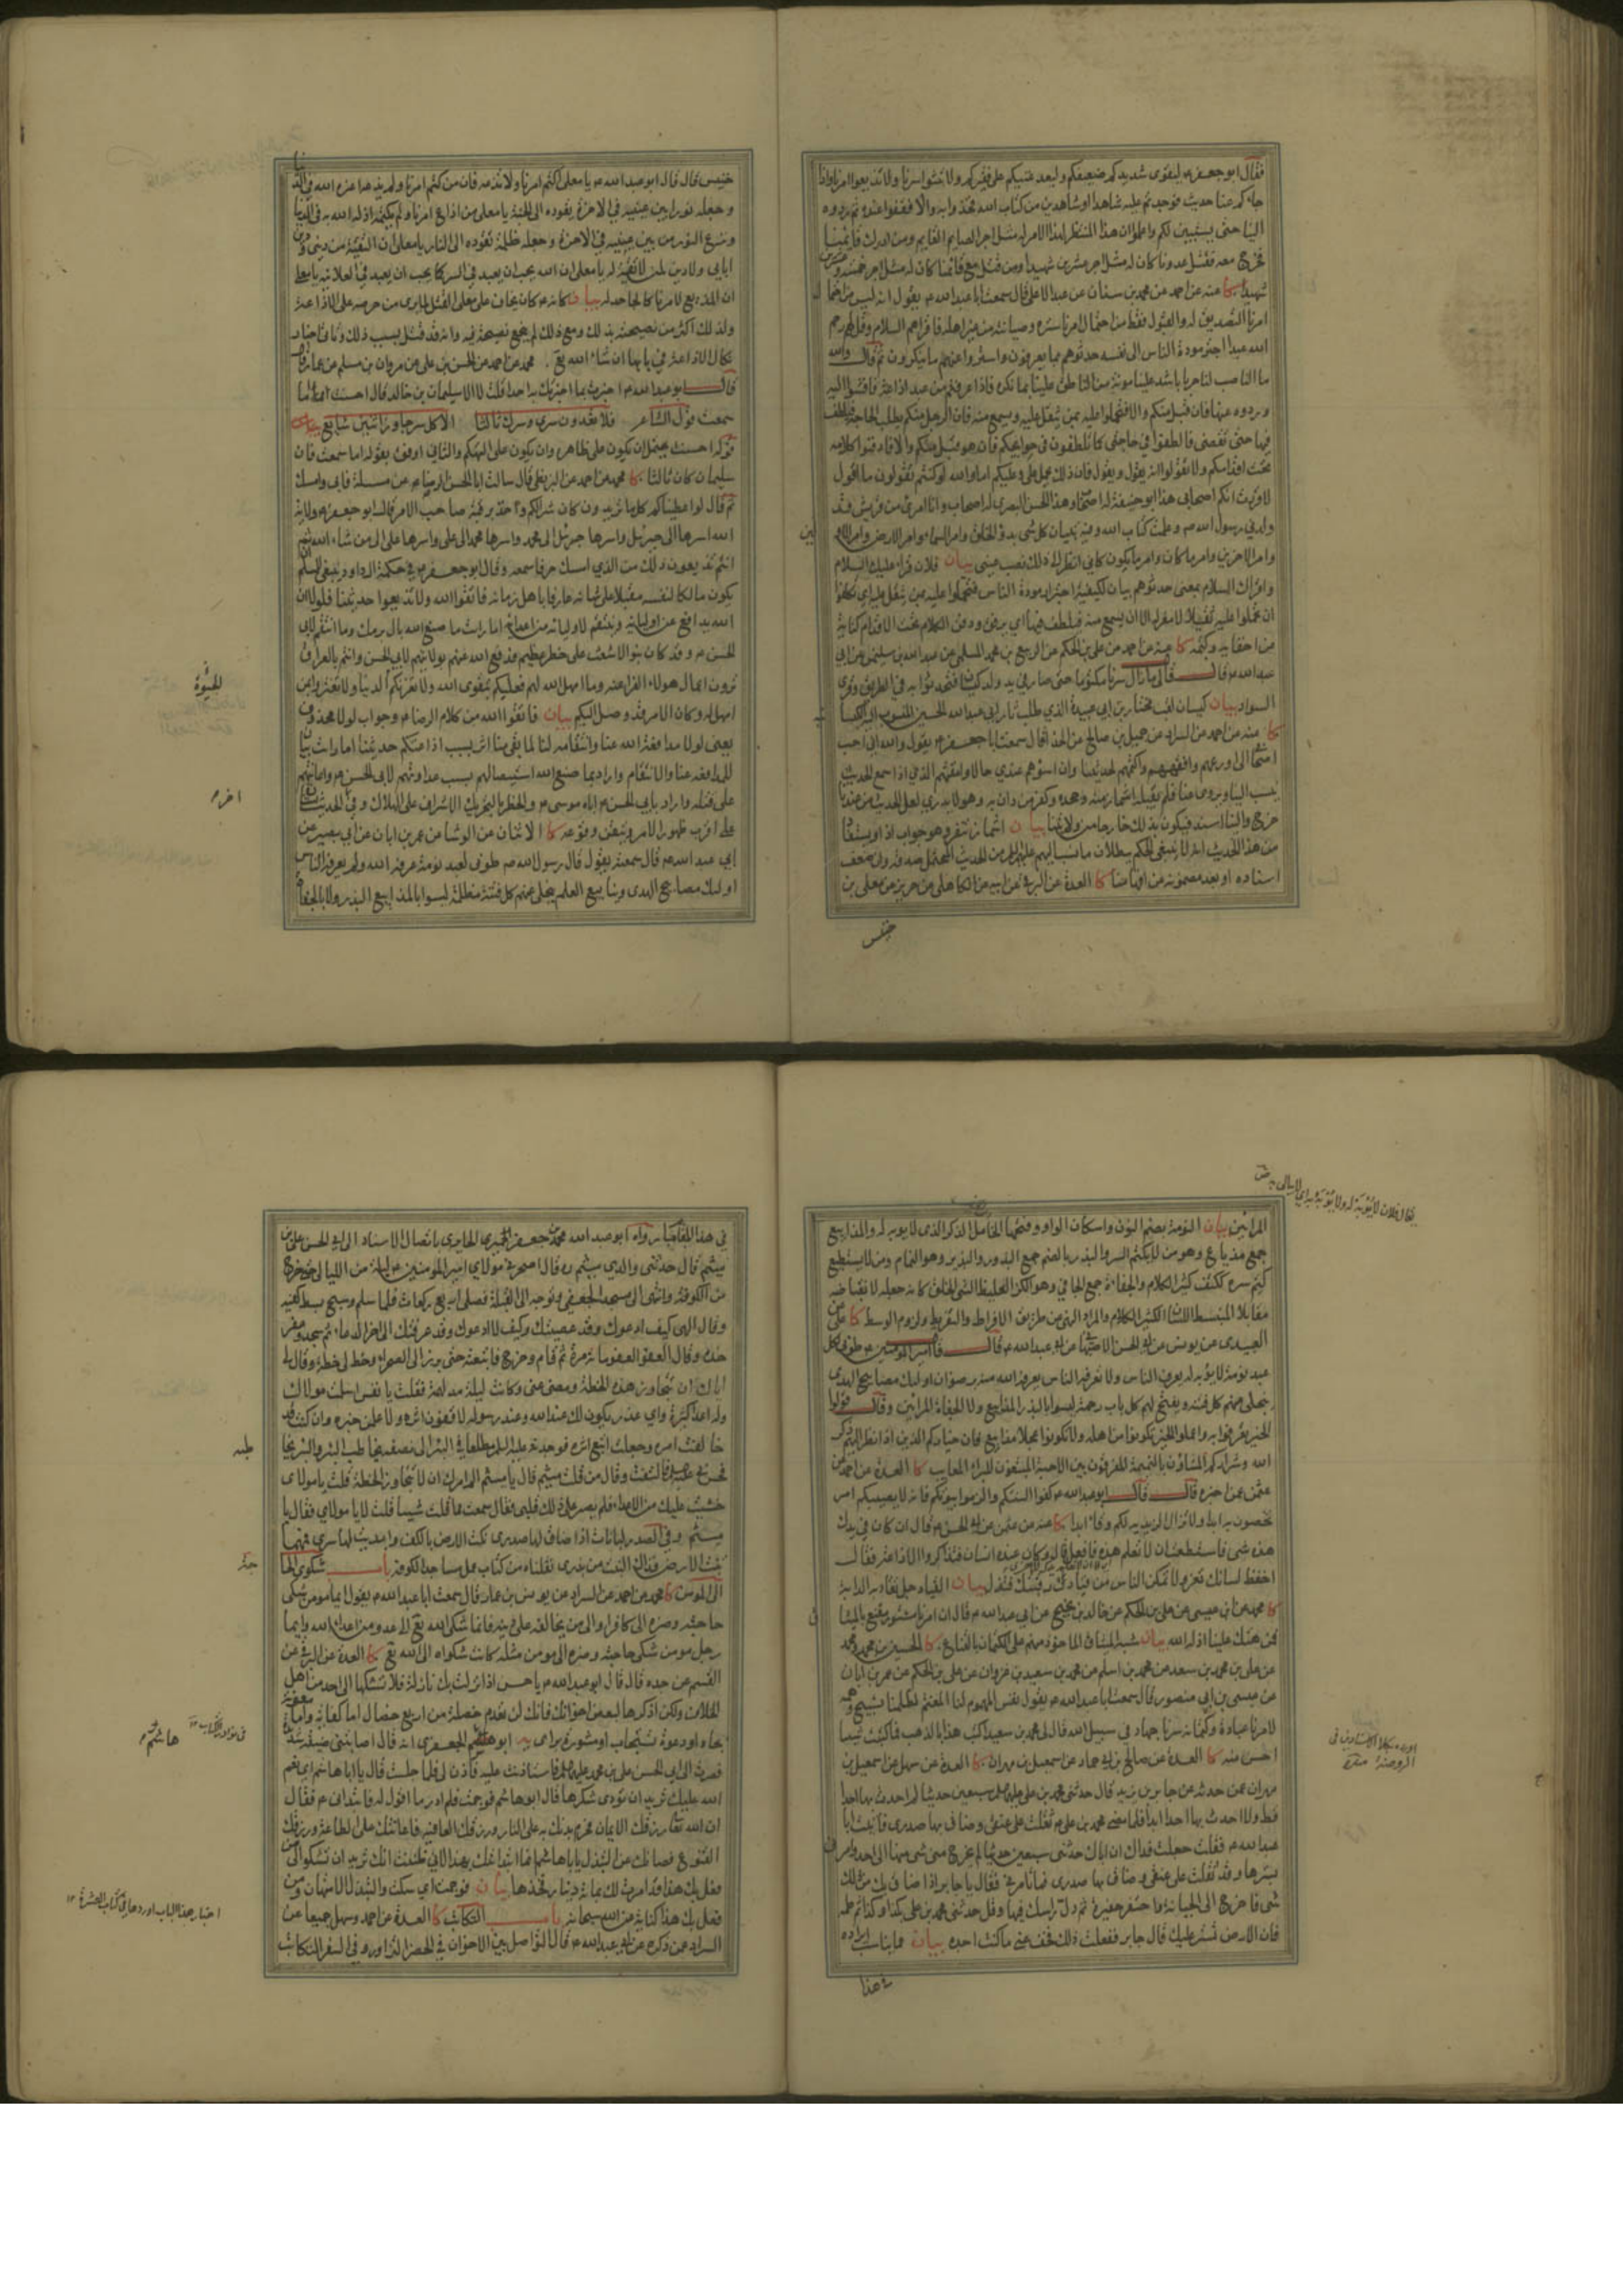 فقال ابو جعفر ع ليقوى شديدكم ضعيفكم وليعد غنيكم على فقيركم ولا تبثوا سرنا ولا تذيعوا امرنا واذا
جاءكم عنا حديث فوجدتم عليه شاهدا او شاهدين من كتاب الله فخذوا به والا فقفوا عنده ثم ردوه
الينا حتى يستبين لكم واعلموا ان هذا المنتظر لهذا الامر له مثل اجر الصايم القايم ومن ادرك قايمنا
فخرج معه فقتل عدونا كان له مثل اجر عشرين شهيدا ومن قتل مع قائمنا كان له مثل اجر خمسة وعشرين
شهيدا كا عنه عن احمد عن محمد بن سنان عن عبد الاعلى قال سمعت ابا عبد الله ع يقول انه ليس من احتمال
امرنا التصديق له والقبول فقط من احتمال امرنا ستره وصيانته من غير اهله فاقرأهم السلام وقل لهم رحم
الله عبدا اجتر مودة الناس الى نفسه حدثوهم بما يعرفون واستروا عنهم ما ينكرون ثم قال والله
ما الناصب لنا حربا باشد علينا مونة من الناطق علينا بما نكره فاذا عرفتم من عبد اذاعة فامشوا اليه
وردوه عنها فان قبل منكم والا فتحملوا عليه بمن يثقل عليه ويسمع منه فان الرجل منكم يطلب الحاجة فيلطف
فيها حتى تقضى فالطفوا في حاجتى كما تلطفون في حوايجكم فان هو قبل منكم والا فادفنوا كلامه
تحت اقدامكم ولا تقولوا انه يقول ويقول فان ذلك يحمل على وعليكم اما والله لو كنتم تقولون ما اقول
لاقررت انكم اصحابى هذا ابو حنيفة له اصحاب وهذا الحسن البصرى له اصحاب وانا امرؤ من قريش قد
ولدنى رسول الله ص وعلمت كتاب الله وفيه تبيان كل شى بدؤ الخلق وامر السماء وامر الارض وامر الاولين
وامر الاخرين وامر ما كان وامر ما يكون كانى انظر الى ذلك نصب عينى بيان فلان قراء عليك السلام
واقراك السلام بمعنى حدثوهم بيان لكيفية اجترار مودة الناس فتحملوا عليه بمن يثقل عليه اى تكلفوا
من احقابه وكتمه كا عنه عن احمد عن على بن الحكم عن الربيع بن محمد المسلى عن عبد الله بن سليمن عن ابى
عبد الله ع قال قال لى ما زال سرنا مكتوما حتى صار في يد ولد كيسان فتحدثوا به في الطريق وقرى
السواد بيان كيسان لقب مختار بن ابى عبيدة الذى طلب ثار ابى عبد الله الحسين
كا عنه عن احمد عن السراد عن جميل بن صالح عن الحذاء قال سمعت ابا جعفر ع يقول والله ان احب
اصحابى الى اورعهم وافقههم واكتمهم لحديثنا وان اسوأهم عندى حالا وامقتهم الذى اذا سمع الحديث
ينسب الينا ويروى عنا فلم يقبله اشمأز منه وجحده وكفر من دان به وهو لا يدرى لعل الحديث من عندنا
خرج والينا اسند فيكون بذلك خارجا من ولايتنا بيان اشمأز تنفر وهو جواب اذا ويستفاد
من هذا الحديث انه لا ينبغى الحكم ببطلان ما نسب اليهم عليهم السلام من الحديث المحتمل صدقه وان ضعف
اسناده او بعد مضمونه عن افهامنا كا العدة عن البرقى عن ابيه عن الكاهلى عن حريز عن معلى بن
خنيس
خنيس قال قال ابو عبد الله ع يا معلى اكتم امرنا ولا تذعه فان من كتم امرنا ولم يذعه اعزه الله في الدنيا
وجعله نورا بين عينيه في الاخرة يقوده الى الجنة يا معلى من اذاع امرنا ولم يكتمه اذله الله به في الدنيا
ونزع النور من بين عينيه في الاخرة وجعله ظلمة تقوده الى النار يا معلى ان التقية من دينى ودين
ابايى ولا دين لمن لا تقية له يا معلى ان الله يحب ان يعبد في السر كما يحب ان يعبد في العلانية يا معلى
ان المذيع لامرنا كالجاحد له بيان كانه ع كان يخاف على معلى القتل لما يرى من حرصه على الاذاعة
ولذلك اكثر من نصيحته بذلك ومع ذلك لم ينجع نصيحته فيه وانه قد قتل بسبب ذلك وتاتى اخبار
نكال الاذاعة في بابها ان شاء الله تعالى محمد عن احمد عن الحسن بن على عن مروان بن مسلم عن عمار قال
قال لى ابو عبد الله ع اخبرت بما اخبرتك به احدا قلت لا الا سليمان بن خالد قال احسنت اما
سمعت قول الشاعر فلا يعدون سرى وسرك ثالثا الا كل سر جاوز اثنين شايع بيان
قوله احسنت يحتمل ان يكون على ظاهره وان يكون على التهكم والثانى اوفق بقوله اما سمعت فان
سليمان كان ثالثا كا محمد عن احمد عن البزنطى قال سالت ابا الحسن الرضا ع عن مسئلة فابى وامسك
ثم قال لو اعطيناكم كل ما تريدون كان شرا لكم واخذ برقبة صاحب الامر قال ابو جعفر ع ولاية
الله اسرها الى جبرئيل واسرها جبرئيل الى محمد واسرها محمد الى على واسرها على الى من شاء الله ثم
انتم تذيعون ذلك من الذى امسك حرفا سمعه وقال ابو جعفر ع في حكمة ال داود ينبغى للمسلم ان
يكون مالكا لنفسه مقبلا على شانه عارفا باهل زمانه فاتقوا الله ولا تذيعوا حديثنا فلولا ان
الله يدافع عن اوليائه وينتقم لاوليائه من اعدائه اما رايت ما صنع الله بال برمك وما انتقم لابى
الحسن ع وقد كان بنو الاشعث على خطر عظيم فدفع الله عنهم بولايتهم لابى الحسن وانتم بالعراق
ترون اعمال هولاء الفراعنة وما امهل الله لهم فعليكم بتقوى الله ولا تغرنكم الدنيا ولا تغتروا بمن
امهل له وكان الامر قد وصل اليكم بيان فاتقوا الله من كلام الرضا ع وجواب لولا محذوف
يعنى لولا مدافعة الله عنا وانتقامه لنا لما بقى منا اثر بسبب اذاعتكم حديثنا اما رايت بيان
للمدافعة عنا والانتقام واراد بما صنع الله استيصالهم بسبب عداوتهم لابى الحسن ع واعانتهم
على قتله واراد بابى الحسن ع اباه موسى ع والخطر بالتحريك الاشراف على الهلاك
على اقرب ظهور الامر وتيقن وقوعه كا الاثنان عن الوشا عن عمر بن ابان عن ابى بصير عن
ابى عبد الله ع قال سمعته يقول قال رسول الله ص طوبى لعبد نومة عرفه الله ولم يعرفه الناس
اوليك مصابيح الهدى وينابيع العلم ينجلى عنهم كل فتنة مظلمة ليسوا بالمذاييع البذر ولا بالجفاة
الحيوة
اخره
المرائين بيان النومة بضم النون واسكان الواو وفتحها الخامل الذكر الذى لا يوبه له والمذاييع
جمع مذياع وهو من لا يكتم السر والبذر بالضم جمع البذور والبذير وهو النمام ومن لا يستطيع
كتم سره ككتف كثير الكلام والجفاة جمع الجافى وهو الكز الغليظ السيئ الخلق كانه جعله لانقباضه
مقابلا لمنبسط اللسان الكثير الكلام والمراد النهى عن طرفى الافراط والتفريط ولزوم الوسط كا على عن
العبيدى عن يونس عن ابى الحسن الاصبهانى عن ابى عبد الله ع قال قال امير المومنين ع طوبى لكل
عبد نومة لا يوبه له يعرف الناس ولا يعرفه الناس يعرفه الله منه برضوان اوليك مصابيح الهدى
ينجلى عنهم كل فتنة ويفتح لهم كل باب رحمة ليسوا بالبذر المذاييع ولا الجفاة المرائين وقال قولوا
الخير تعرفوا به واعملوا الخير تكونوا من اهله ولا تكونوا عجلا مذاييع فان خياركم الذين اذا نظر اليهم ذكر
الله وشراركم المشاؤن بالنميمة المفرقون بين الاحبة المبتغون للبراء المعايب كا العدة عن احمد عن
عثمن عمن اخبره قال قال ابو عبد الله ع كفوا السنتكم والزموا بيوتكم فانه لا يصيبكم امر
تخصون به ابدا ولا تزال الزيدية لكم وقاء ابدا كا عنه عن عثمن عن ابى الحسن ع قال ان كان في يدك
هذه شى فاستطعت ان لا تعلم هذه فافعل قال وكان عنده انسان فتذاكروا الاذاعة فقال
احفظ لسانك تعز ولا تمكن الناس من قياد رقبتك فتذل بيان القياد حبل تقاد به الدابة
كا محمد عن ابن عيسى عن على بن الحكم عن خالد بن نجيح عن ابى عبد الله ع قال ان امرنا مستور مقنع بالميثاق
فمن هتك علينا اذله الله بيان شبه الميثاق الماخوذ منهم على الكتمان بالقناع كا الحسين بن محمد ومحمد
عن على بن محمد بن سعد عن محمد بن اسلم عن محمد بن سعيد بن غزوان عن على بن الحكم عن عمر بن ابان
عن عيسى بن ابى منصور قال سمعت ابا عبد الله ع يقول نفس المهموم لنا المغتم لظلمنا تسبيح وهمه
لامرنا عبادة وكتمانه سرنا جهاد في سبيل الله قال لى محمد بن سعيد اكتب هذا بالذهب فما كتبت شيئا
احسن منه كا العدة عن صالح بن ابى حماد عن اسمعيل بن مهران كا العدة عن سهل عن اسمعيل بن
مهران عمن حدثه عن جابر بن يزيد قال حدثنى محمد بن على عليهما السلام سبعين حديثا لم احدث بها احدا
قط ولا احدث بها احدا ابدا فلما مضى محمد بن على ع ثقلت على عنقى وضاق بها صدرى فاتيت ابا
عبد الله ع فقلت جعلت فداك ان اباك حدثنى سبعين حديثا لم يخرج منى شى منها الى احد وامرنى
بسترها وقد ثقلت على عنقى وضاق بها صدرى فما تامرنى فقال يا جابر اذا ضاق بك من ذلك
شى فاخرج الى الجبانة واحتفر حفيرة ثم دل راسك فيها وقل حدثنى محمد بن على بكذا وكذا ثم طمه
فان الارض تستر عليك قال جابر ففعلت ذلك فخف عنى ما كنت اجده بيان مما يناسب ايراده
في هذا
اورده بهذا الاسناد في
الروضة منه
في هذا المقام ما رواه ابو عبد الله محمد بن جعفر الحايرى باتصال الاسناد الى ابى الحسن على بن
ميثم قال حدثنى والدى ميثم ره قال اصحر بى مولاى امير المومنين ع ليلة من الليالى حتى خرج
من الكوفة وانتهى الى مسجد الجعفى وتوجه الى القبلة فصلى اربع ركعات فلما سلم وسبح بسط كفيه
وقال الهى كيف ادعوك وقد عصيتك وكيف لا ادعوك وقد عرفتك الى اخر الدعاء ثم سجد وعفر
خده وقال العفو العفو ماية مرة ثم قام وخرج فاتبعته حتى برز الى الصحراء وخط لى خطة وقال
اياك ان تجاوز هذه الخطة ومضى عنى وكانت ليلة مدلهمة فقلت يا نفس اسلمت مولاك
وله اعداء كثيرة واى عذر يكون لك عند الله وعند رسوله لاقفون اثره ولاعلمن خبره وان كنت قد
خالفت امره وجعلت اتبع اثره فوجدته عليه السلام مطلعا في البئر الى نصفه يخاطب البئر والبئر تخاطبه
فالتفت وقال من قلت ميثم قال يا ميثم الم امرك ان لا تتجاوز الخطة قلت يا مولاى
خشيت عليك من الاعداء فلم يصبر لذلك قلبى فقال سمعت مما قلت شيئا قلت لا يا مولاى فقال يا
ميثم وفى الصدر لبانات اذا ضاق لها صدرى نكت الارض بالكف وابديت لها سرى فمهما
تنبت الارض فذاك النبت من بذرى نقلناه من كتاب عمل مساجد الكوفة باب شكوى الحاجة
الى المومن كا محمد عن احمد عن السراد عن يونس بن عمار قال سمعت ابا عبد الله ع يقول ايما مومن شكى
حاجته وضره الى كافر او الى من يخالفه على دينه فانما شكى الله تعالى الى عدو من اعداء الله وايما
رجل مومن شكى حاجته وضره الى مومن مثله كانت شكواه الى الله تعالى كا العدة عن البرقى عن
القسم عن جده قال قال ابو عبد الله ع يا حسن اذا نزلت بك نازلة فلا تشكها الى احد من اهل
الخلاف ولكن اذكرها لبعض اخوانك فانك لن تعدم خصلة من اربع خصال اما كفاية واما معونة
بجاه او دعوة تستجاب او مشورة براى يه ابو هاشم الجعفرى انه قال اصابتنى ضيقة شديدة
فصرت الى ابى الحسن على بن محمد عليهما السلام فاستاذنت عليه فاذن لى فلما جلست قال يا ابا هاشم اى نعم
الله عليك تريد ان تودى شكرها قال ابو هاشم فوجمت فلم ادر ما اقول له فابتدانى ع فقال
ان الله تعالى رزقك الايمان فحرم بدنك به على النار ورزقك العافية فاعانتك على الطاعة ورزقك
القنوع فصانك عن التبذل يا ابا هاشم انما ابتداتك بهذا لانى ظننت انك تريد ان تشكو الى من
فعل بك هذا قد امرت لك بماية دينار فخذها بيان فوجمت اى سكت والتبذل الامتهان ومن
فعل بك هذا كناية عن الله سبحانه باب التكاتب كا العدة عن احمد وسهل جميعا عن
السراد عمن ذكره عن ابى عبد الله ع قال التواصل بين الاخوان في الحضر التزاور وفى السفر التكاتب
هاشم
اخبار هذا الباب اوردها في كتاب العشرة